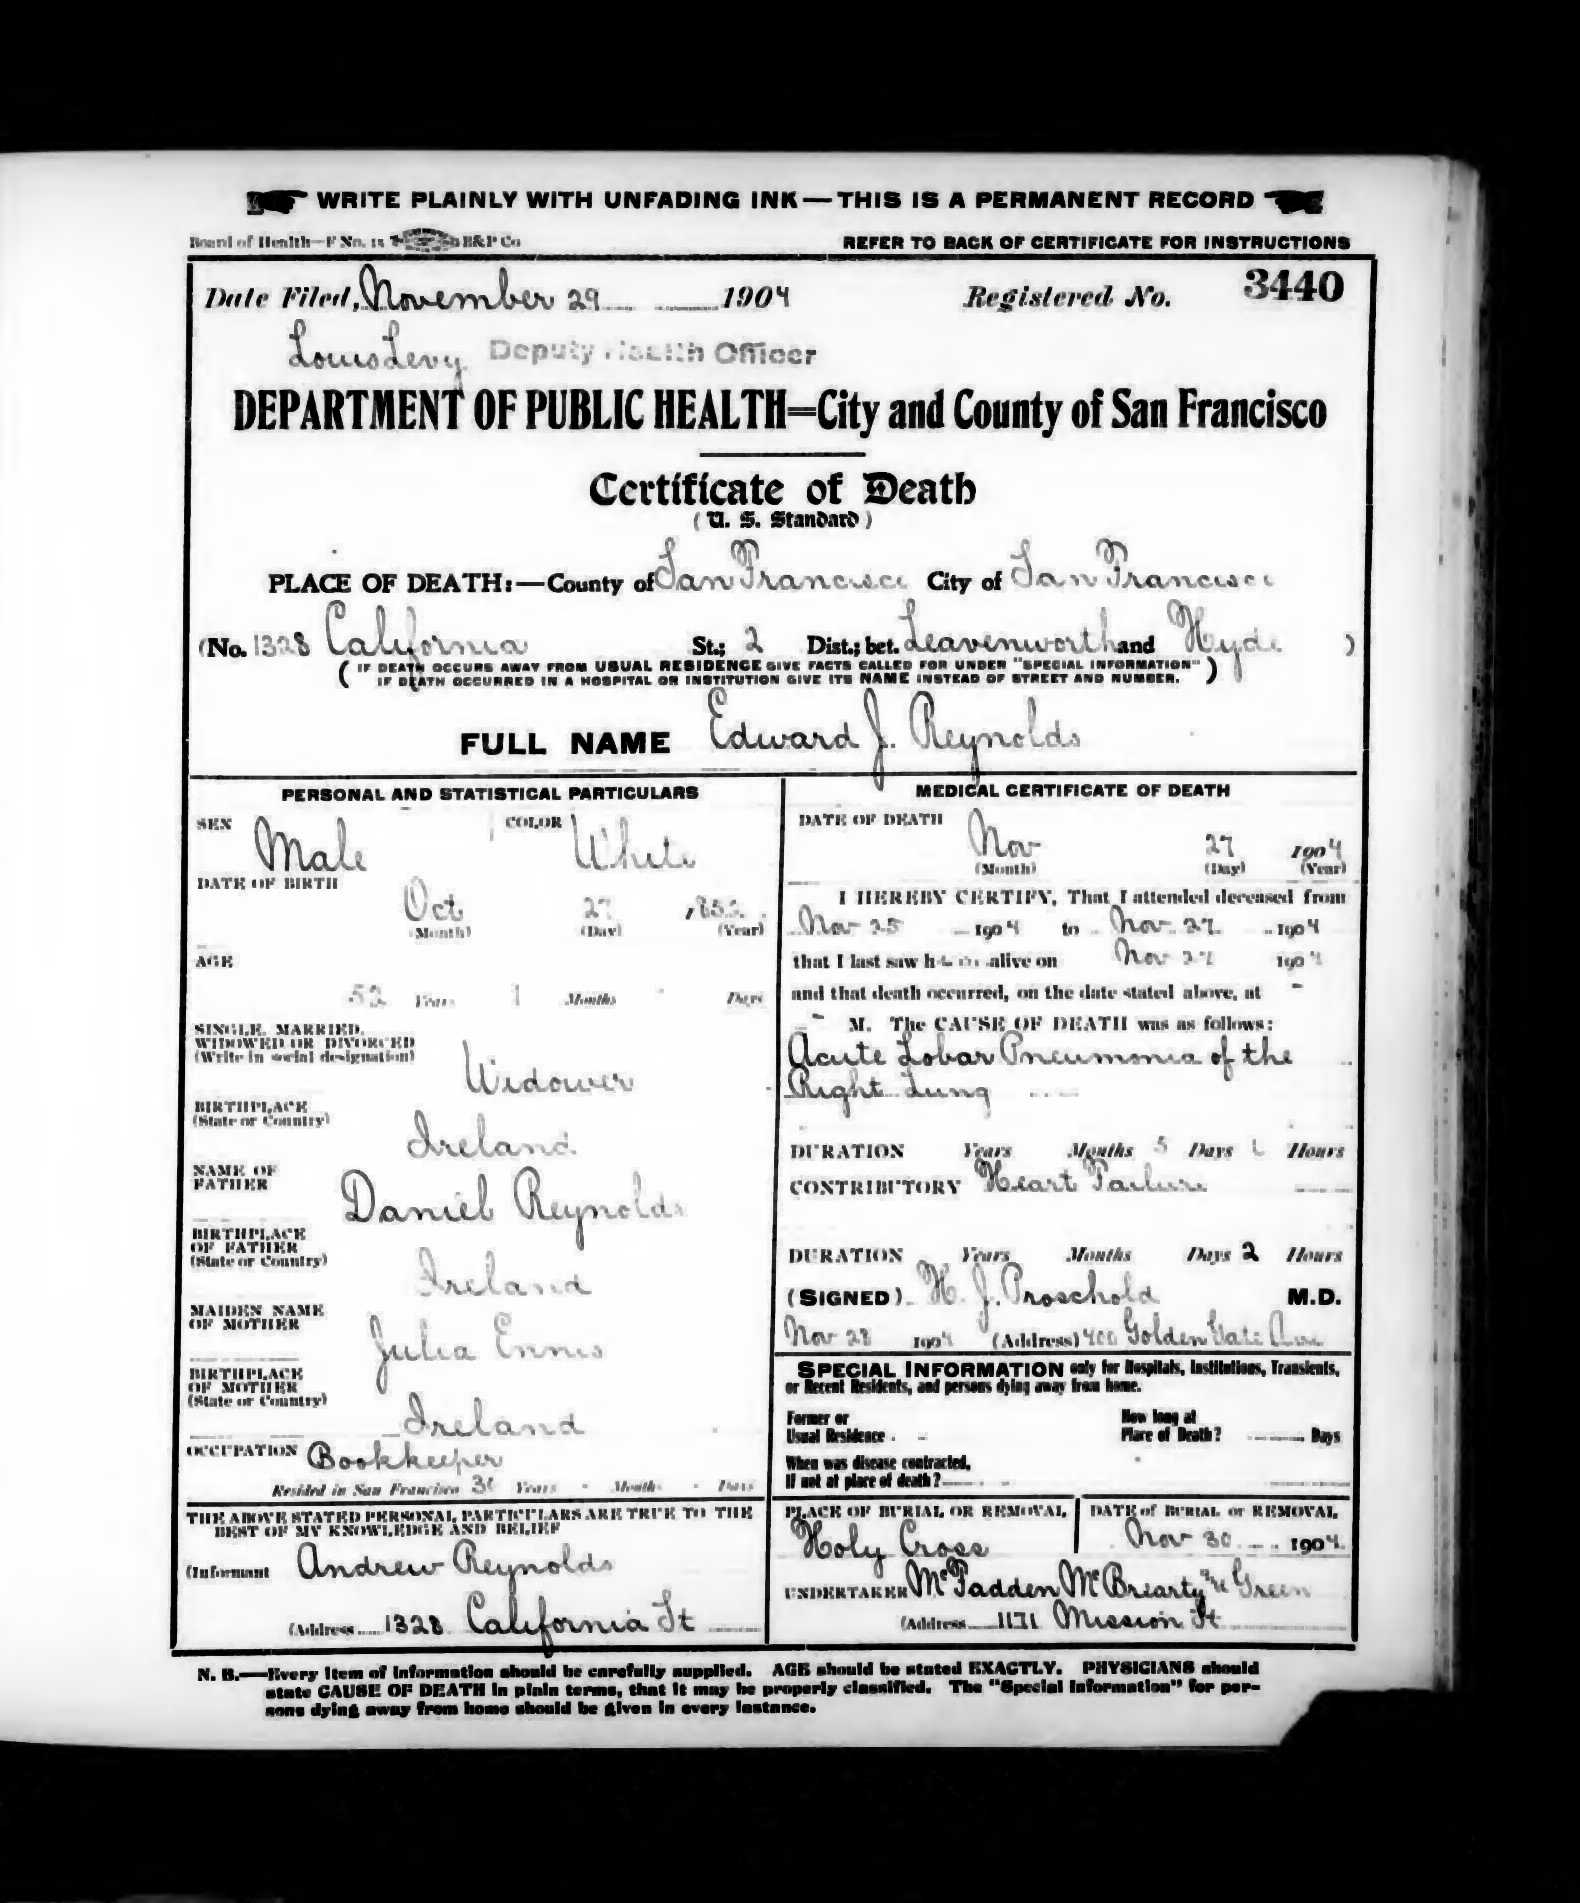 WRITE PLAINLY WITH UNFADING INK—THIS IS A PERMANENT RECORD
Board of Health—F No. 15 B&P Co
REFER TO BACK OF CERTIFICATE FOR INSTRUCTIONS
Date Filed, November 29 1904 Registered No. 3440
Louis Levy Deputy Health Officer
DEPARTMENT OF PUBLIC HEALTH=City and County of San Francisco
Certificate of Death
(U. S. Standard)
PLACE OF DEATH:—County of San Francisco City of San Francisco
(No. 1328 California St.; 2 Dist.; bet. Leavenworth and Hyde )
( IF DEATH OCCURS AWAY FROM USUAL RESIDENCE GIVE FACTS CALLED FOR UNDER "SPECIAL INFORMATION" )
IF DEATH OCCURRED IN A HOSPITAL OR INSTITUTION GIVE ITS NAME INSTEAD OF STREET AND NUMBER.
FULL NAME Edward J. Reynolds
PERSONAL AND STATISTICAL PARTICULARS
SEX Male COLOR White
DATE OF BIRTH
Oct 27 1852
(Month) (Day) (Year)
AGE
52 Years 1 Months - Days
SINGLE, MARRIED,
WIDOWED OR DIVORCED
(Write in social designation)
Widower
BIRTHPLACE
(State or Country)
Ireland
NAME OF
FATHER
Daniel Reynolds
BIRTHPLACE
OF FATHER
(State or Country)
Ireland
MAIDEN NAME
OF MOTHER
Julia Ennis
BIRTHPLACE
OF MOTHER
(State or Country)
Ireland
OCCUPATION Bookkeeper
Resided in San Francisco Years - Months - Days
THE ABOVE STATED PERSONAL PARTICULARS ARE TRUE TO THE
BEST OF MY KNOWLEDGE AND BELIEF
(Informant Andrew Reynolds
(Address 1328 California St
MEDICAL CERTIFICATE OF DEATH
DATE OF DEATH
Nov 27 1904
(Month) (Day) (Year)
I HEREBY CERTIFY, That I attended deceased from
Nov 25 1904 to Nov 27 1904
that I last saw him alive on Nov 27 1904
and that death occurred, on the date stated above, at -
- M. The CAUSE OF DEATH was as follows:
Acute Lobar Pneumonia of the
Right Lung
DURATION Years Months 5 Days Hours
CONTRIBUTORY Heart Failure
DURATION Years Months Days 2 Hours
(SIGNED) H. J. Proschold M.D.
Nov 28 1904 (Address) 400 Golden Gate Ave
SPECIAL INFORMATION only for Hospitals, Institutions, Transients,
or Recent Residents, and persons dying away from home.
Former or
Usual Residence -
How long at
Place of Death? Days
When was disease contracted,
If not at place of death?
PLACE OF BURIAL OR REMOVAL
Holy Cross
DATE of BURIAL or REMOVAL
Nov 30 1904
UNDERTAKER McFadden McBrearty & Green
(Address 1171 Mission St
N. B.—Every item of information should be carefully supplied. AGE should be stated EXACTLY. PHYSICIANS should
state CAUSE OF DEATH in plain terms, that it may be properly classified. The "Special Information" for per-
sons dying away from home should be given in every instance.